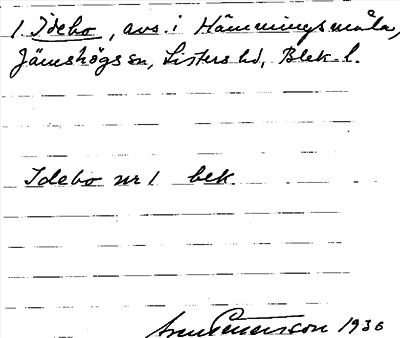 1. Idebo, avs. i Hämmingsmåla,
Jämshögs sn, Listers hd, Blek. l.
Idebo nr 1 bek.
1930